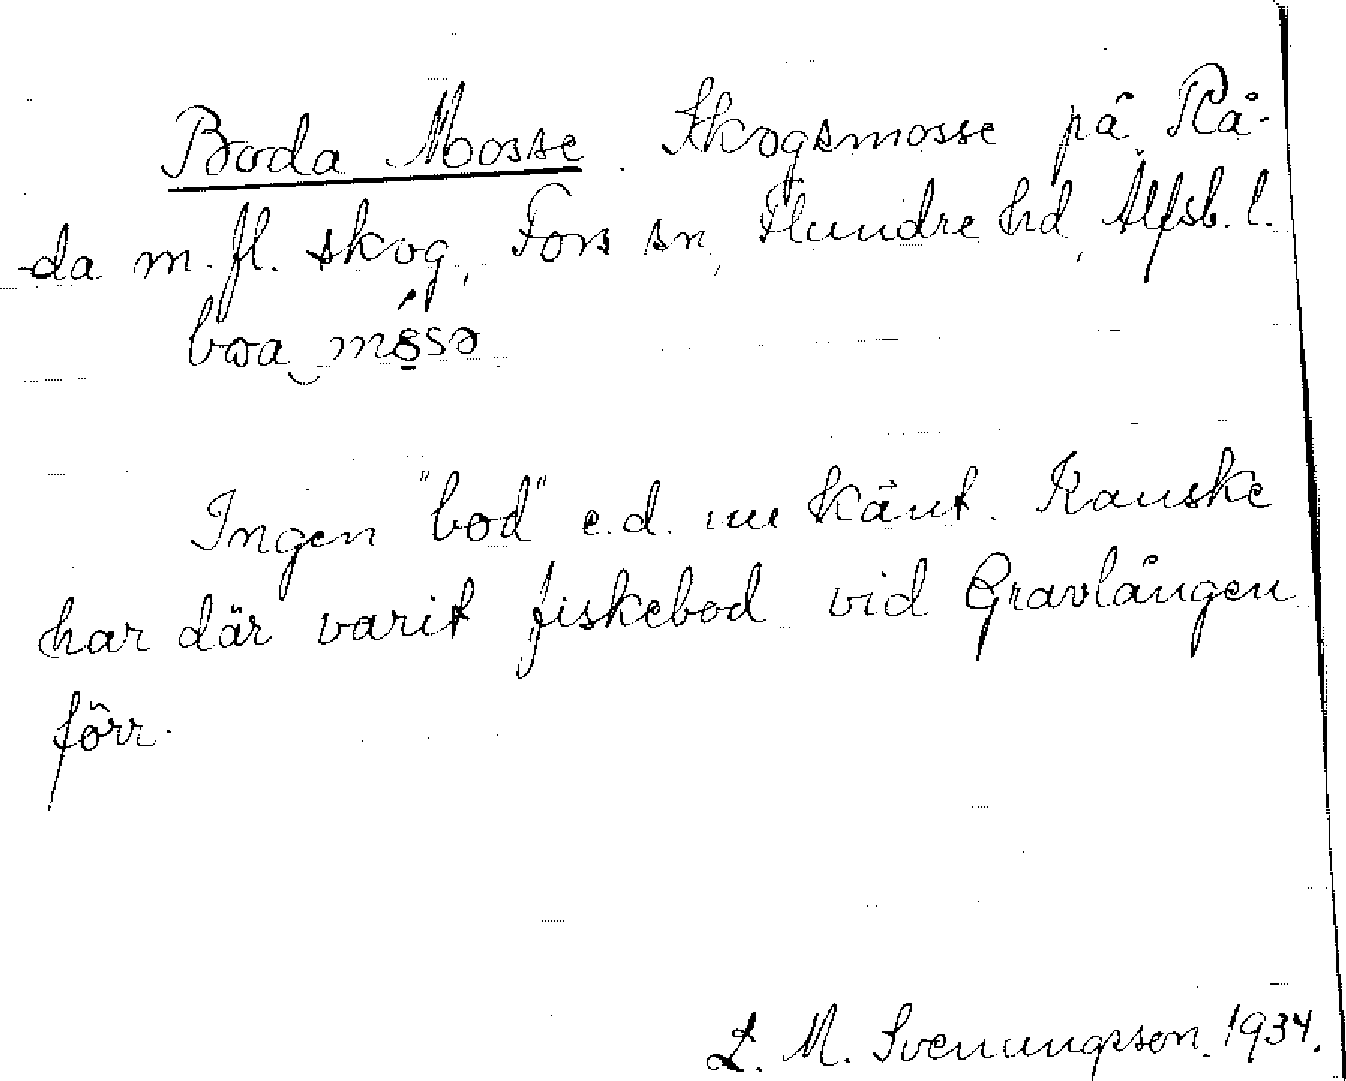 Boda Mosse. Skogsmosse på Rå-
da m. fl. skog, Fors sn, Flundre hd, Älfsb. l.
boa mosə
Ingen "bod" e.d. nu känt. Kanske
har där varit fiskebod vid Gravlången
förr.
L. M. Svenungsson. 1934.